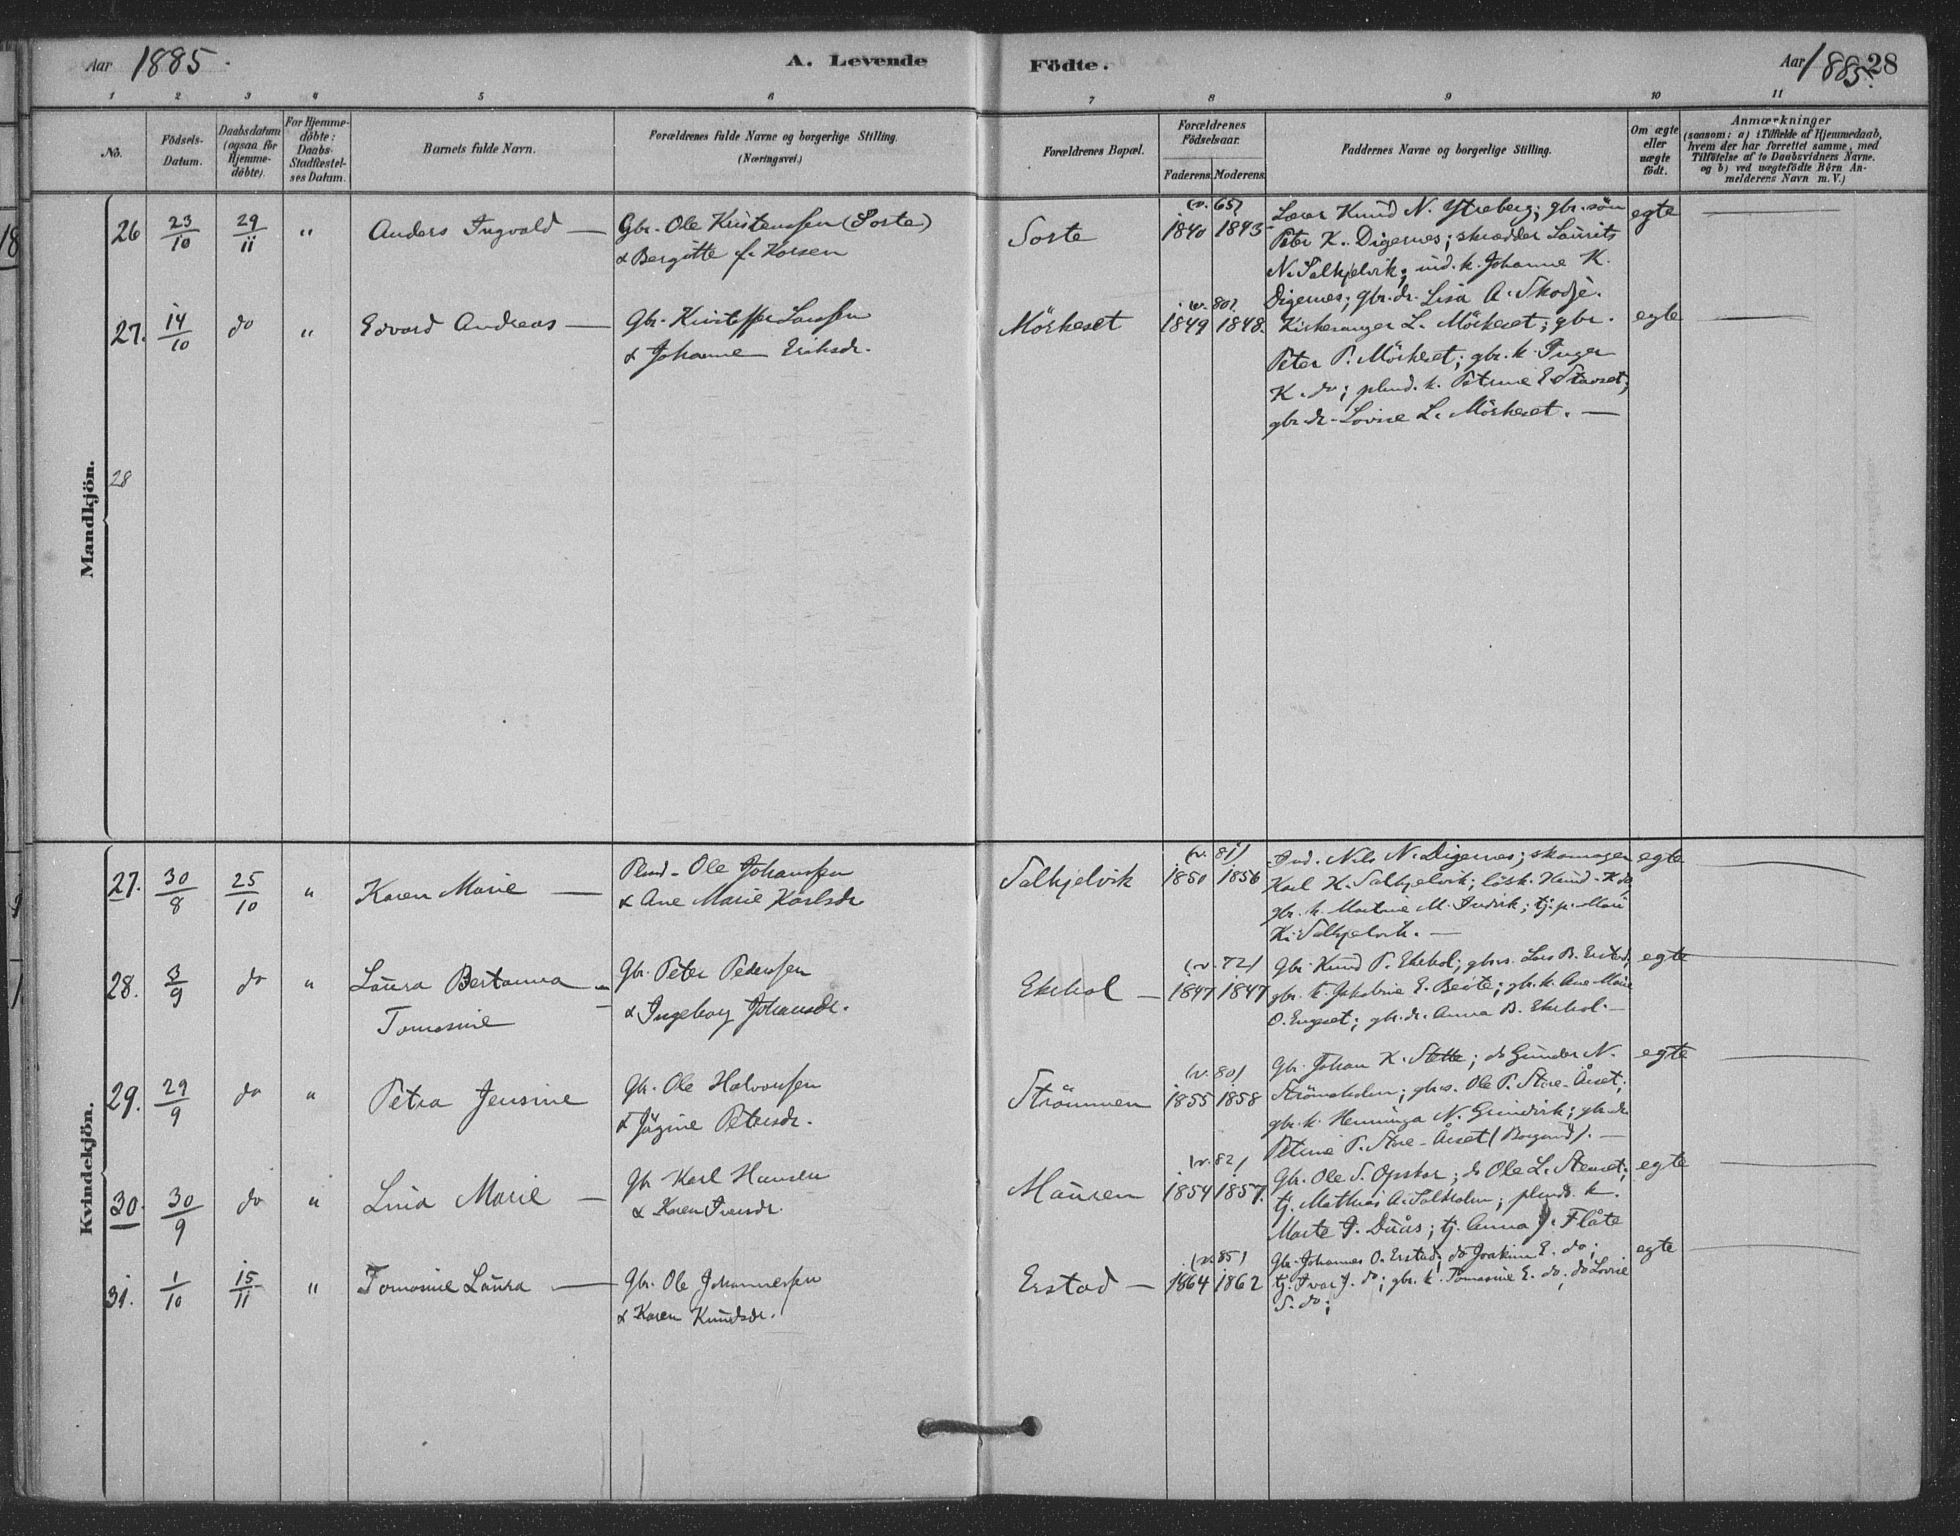 Aar 1885.
A. Levende
Födte.
Aar 1885. 28
1 2 3 4 5 6 7 8 9 10 11
No.
Födsels-
Datum.
Daabsdatum
(ogsaa for
Hjemme-
döbte).
For Hjemme-
döbte:
Daabs-
Stadfæstel-
ses Datum.
Barnets fulde Navn.
Forældrenes fulde Navne og borgerlige Stilling.
(Næringsvei.)
Forældrenes Bopæl.
Forældrenes
Födselsaar.
Faderens. Moderens.
Faddernes Navne og borgerlige Stilling.
Om ægte
eller
uægte
födt.
Anmærkninger
(saasom: a) i Tilfælde af Hjemmedaab,
hvem der har forrettet samme, med
Tilföielse af to Daabsvidners Navne,
og b) ved uægtefödte Börn An-
melderens Navn m. V.)
Mandkjön.
26 23/10 29/11 " Anders Ingvald — Gbr. Ole Kristenssen (Sorte)
& Bergitte f. Korsen
Sorte
(v. 65)
1840 1843
Lærer Knud N. Ytreberg; gbr. sön
Peter K. Digernes; skrædder Laurits
N. Solkjelvik; ind. k. Johanne K.
Digernes; gbr. dr. Lisa A. Skodje.
egte
27. 14/10 do " Edvard Andreas — Gbr. Kristoffer Larssen
& Johanne Eriksdr.
Mörkeset
(v. 80)
1849 1848.
Kirkesanger L. Mörkeset; gbr.
Peter P. Mörkeset; gbr. k. Inger
K. do; plnd. k. Petrine E Stavset;
gbr. dr. Lovise L. Mörkeset. —
egte
28
Kvindekjön.
27. 30/8 25/10 " Karen Marie — Plnd. Ole Johanssen
& Ane Marie Karlsdr
Solkjelvik
(v. 81)
1850 1856
Ind. Nils N. Digernes; skomager
Karl K. Solkjelvik; lösk. Knud K do
gbr. k. Martine M. ; tj. p. Mari
K. Solkjelvik. —
egte
28. 3/9 do " Laura Bertanna
Tomasine
Gbr. Peter Pederssen
& Ingeborg Johansdr.
Ekehol —
(v. 72)
1847 1847
Gbr. Knud P. Ekehol; gbrs. Lars B. Erstad;
gbr. k. Jakobine E. Beite; gbr. k. Ane Marie
O. Engeset; gbr. dr. Anna B. Ekehol. —
egte
29. 29/9 do " Petra Jensine
Gbr. Ole Halvorssen
& Jögine Petersdr.
Strömmen
(v. 80)
1855 1858
Gbr. Johan K. Stette; do Gunder N.
Strömsholm; gbrs. Ole P. Store-Åset;
gbr. k. Henninga N. Grindvik; gbr. dr
Petrine P. Store-Åset (Borgund). —
egte
30. 30/9 do " Lina Marie —
Gbr Karl Hansen
& Karen Iversdr.
Mauren
(v. 82)
1854 1857.
Gbr. Ole S. Opskar; do Ole L. Stenset;
tj. Mathias A. Solholm; plnds. k.
Marte I. Duås; tj. Anna J. Flåte
egte
31. 1/10 15/11 " Tomasine Laura —
Gbr. Ole Johannessen
& Karen Knudsdr.
Erstad —
(v. 85)
1864 1862
Gbr. Johannes O. Erstad; do Joakim E. do;
tj. Ivar J. do; gbr. k. Tomasine E. do; do Lovise
S. do;
egte